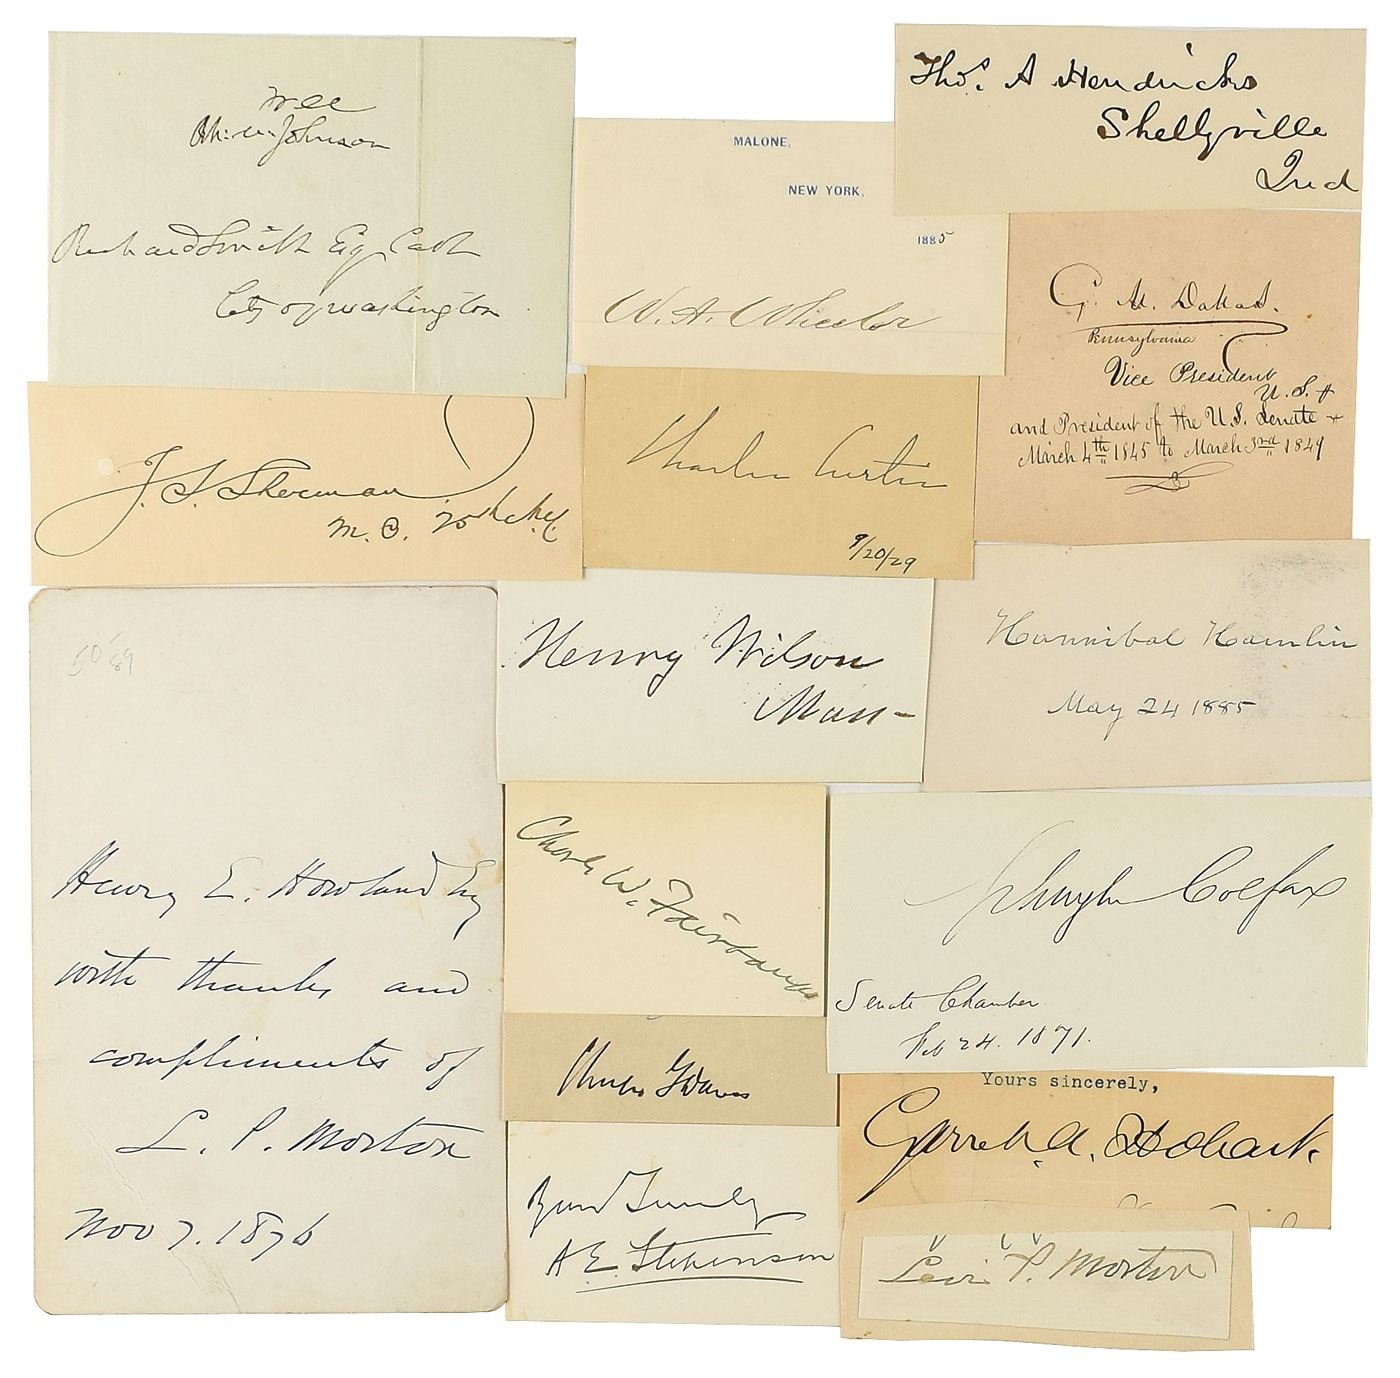 Rh: M. Johnson
Richard Smith Esq Cash
City of Washington
MALONE,
NEW YORK,
1885
W. A. Wheeler
Thos. A Hendricks
Shelbyville
Ind
G. M. Dallas.
Pennsylvania
Vice President
U. S. +
and President of the U.S. Senate +
March 4th 1845 to March 3rd 1849
J. S. Sherman
M. C.
Charles Curtis
9/20/29
Henry Wilson
Mass -
Hannibal Hamlin
May 24 1885
50 '89
Henry E. Howland Esq
with thanks and
compliments of
L. P. Morton
Nov 7. 1876
Charles W. Fairbanks
Schuyler Colfax
Senate Chamber
Feb 24. 1871.
Charles G Dawes
Yours sincerely,
Garret A. Hobart.
Yours Truly
A E. Stevenson
Levi P. Morton